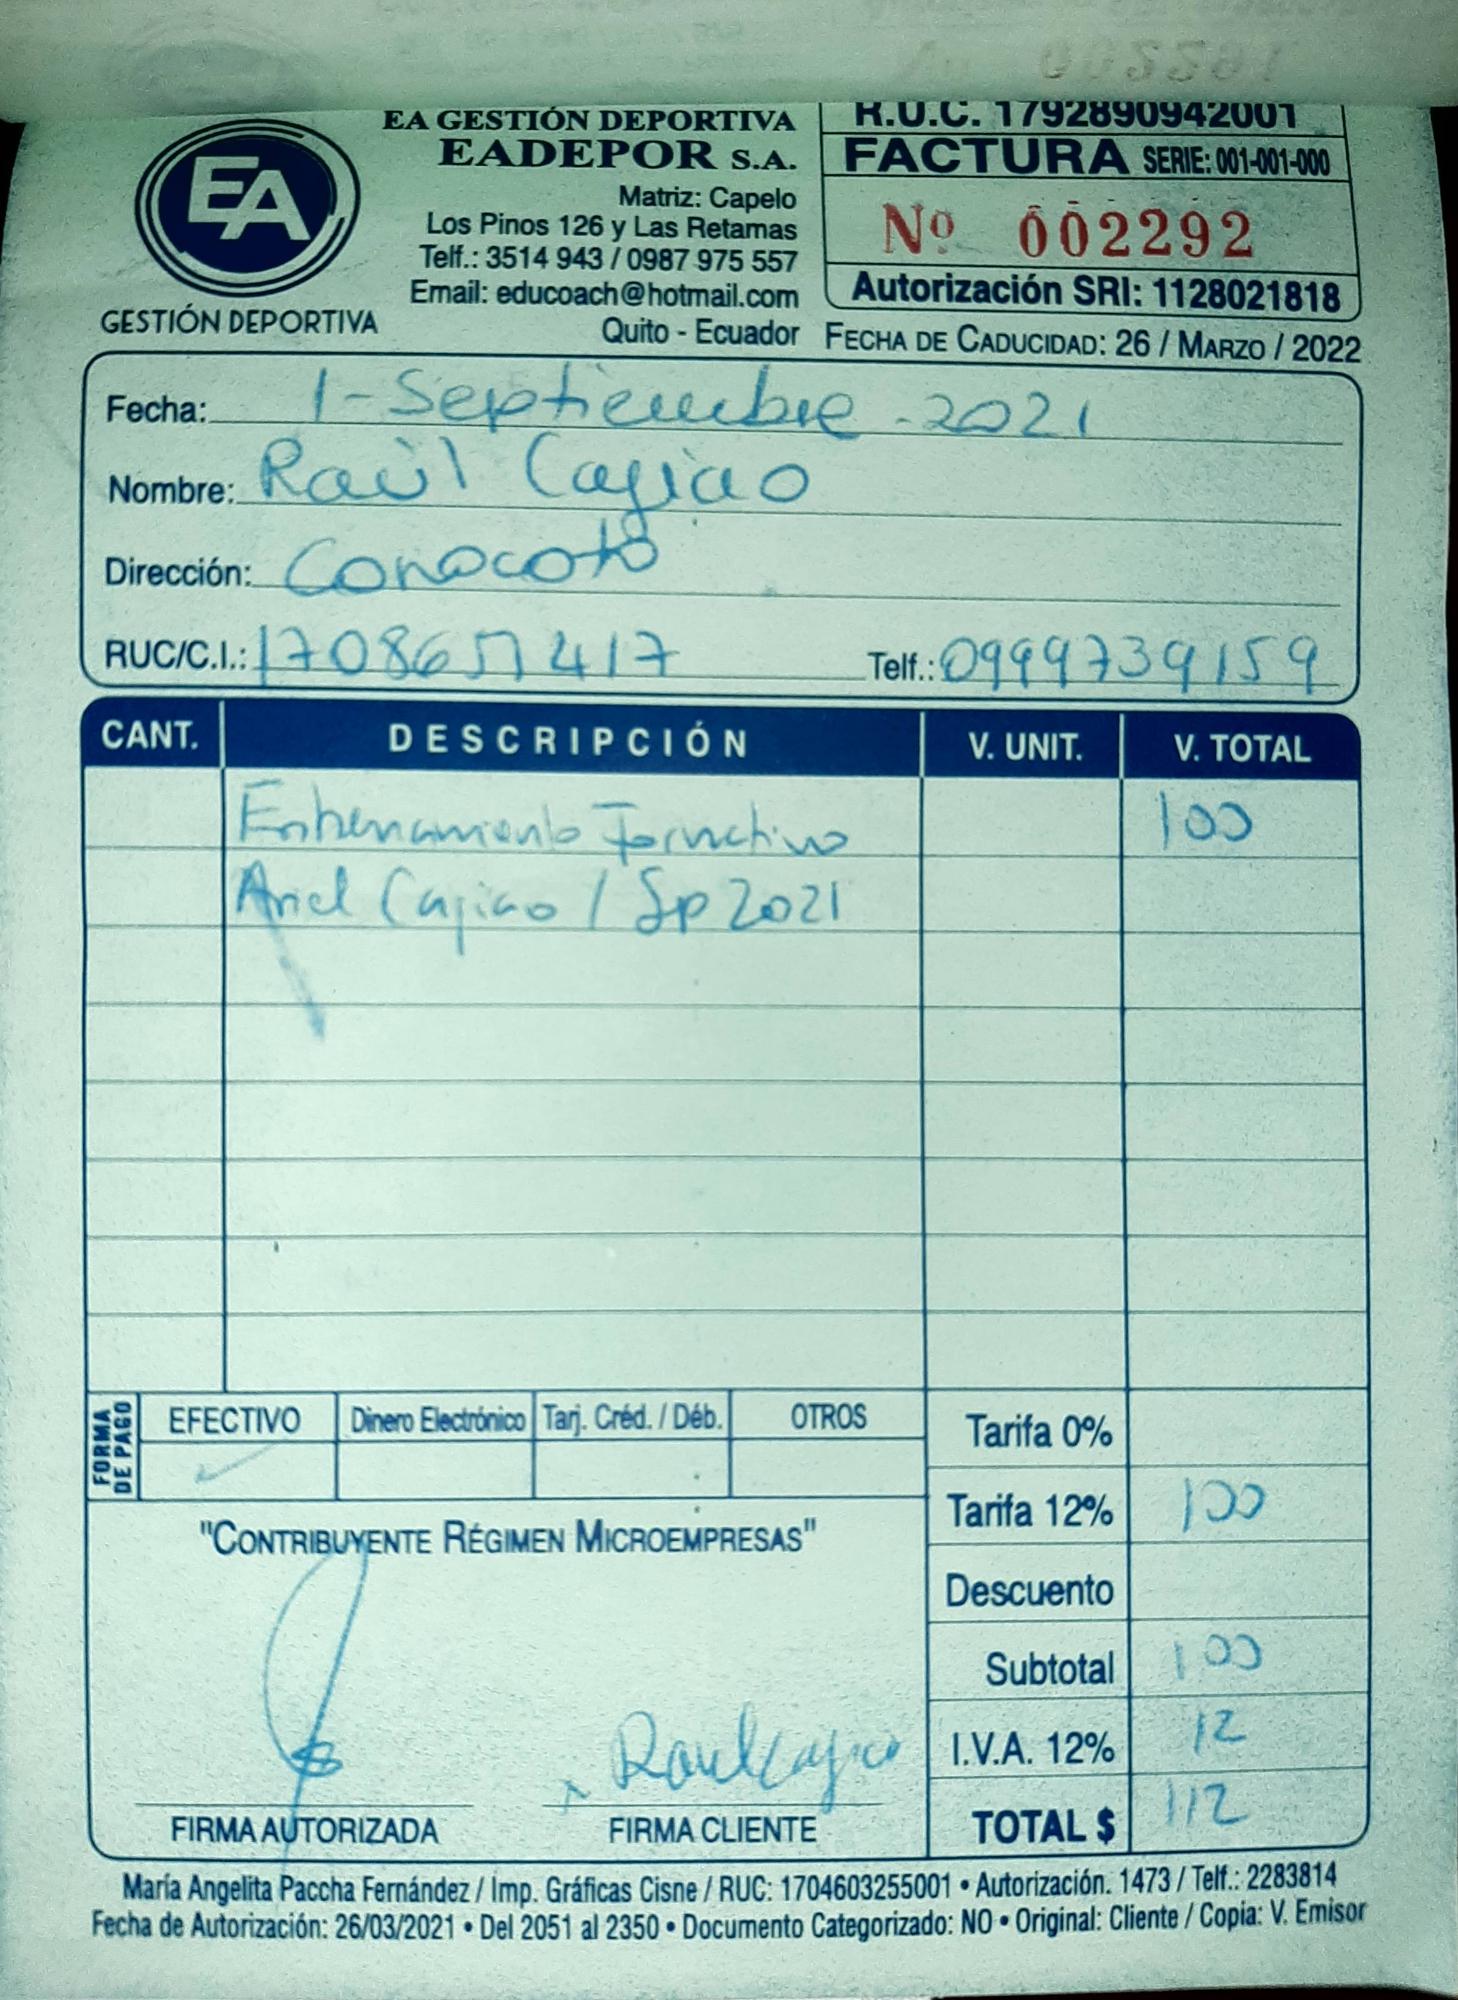 EA
GESTIÓN DEPORTIVA
EA GESTIÓN DEPORTIVA
EADEPOR S.A.
Matriz: Capelo
Los Pinos 126 y Las Retamas
Telf.: 3514 943 / 0987 975 557
Email: educoach@hotmail.com
Quito - Ecuador
R.U.C. 1792890942001
FACTURA SERIE: 001-001-000
Nº 002292
Autorización SRI: 1128021818
FECHA DE CADUCIDAD: 26 / MARZO / 2022
Fecha: 1-Septiembre-2021
Nombre: Raúl Cagiao
Dirección: Conocoto
RUC/C.I.: Telf.: 0999739159
CANT. DESCRIPCIÓN V. UNIT. V. TOTAL
Entrenamiento Formativo 100
Ariel Cagiao / Sp 2021
FORMA DE PAGO
EFECTIVO Dinero Electrónico Tarj. Créd. / Déb. OTROS
Tarifa 0%
Tarifa 12% 100
"CONTRIBUYENTE RÉGIMEN MICROEMPRESAS"
Descuento
Subtotal 100
I.V.A. 12% 12
Raul Cagiao
TOTAL $ 112
FIRMA AUTORIZADA FIRMA CLIENTE
María Angelita Paccha Fernández / Imp. Gráficas Cisne / RUC: 1704603255001 • Autorización. 1473 / Telf.: 2283814
Fecha de Autorización: 26/03/2021 • Del 2051 al 2350 • Documento Categorizado: NO • Original: Cliente / Copia: V. Emisor